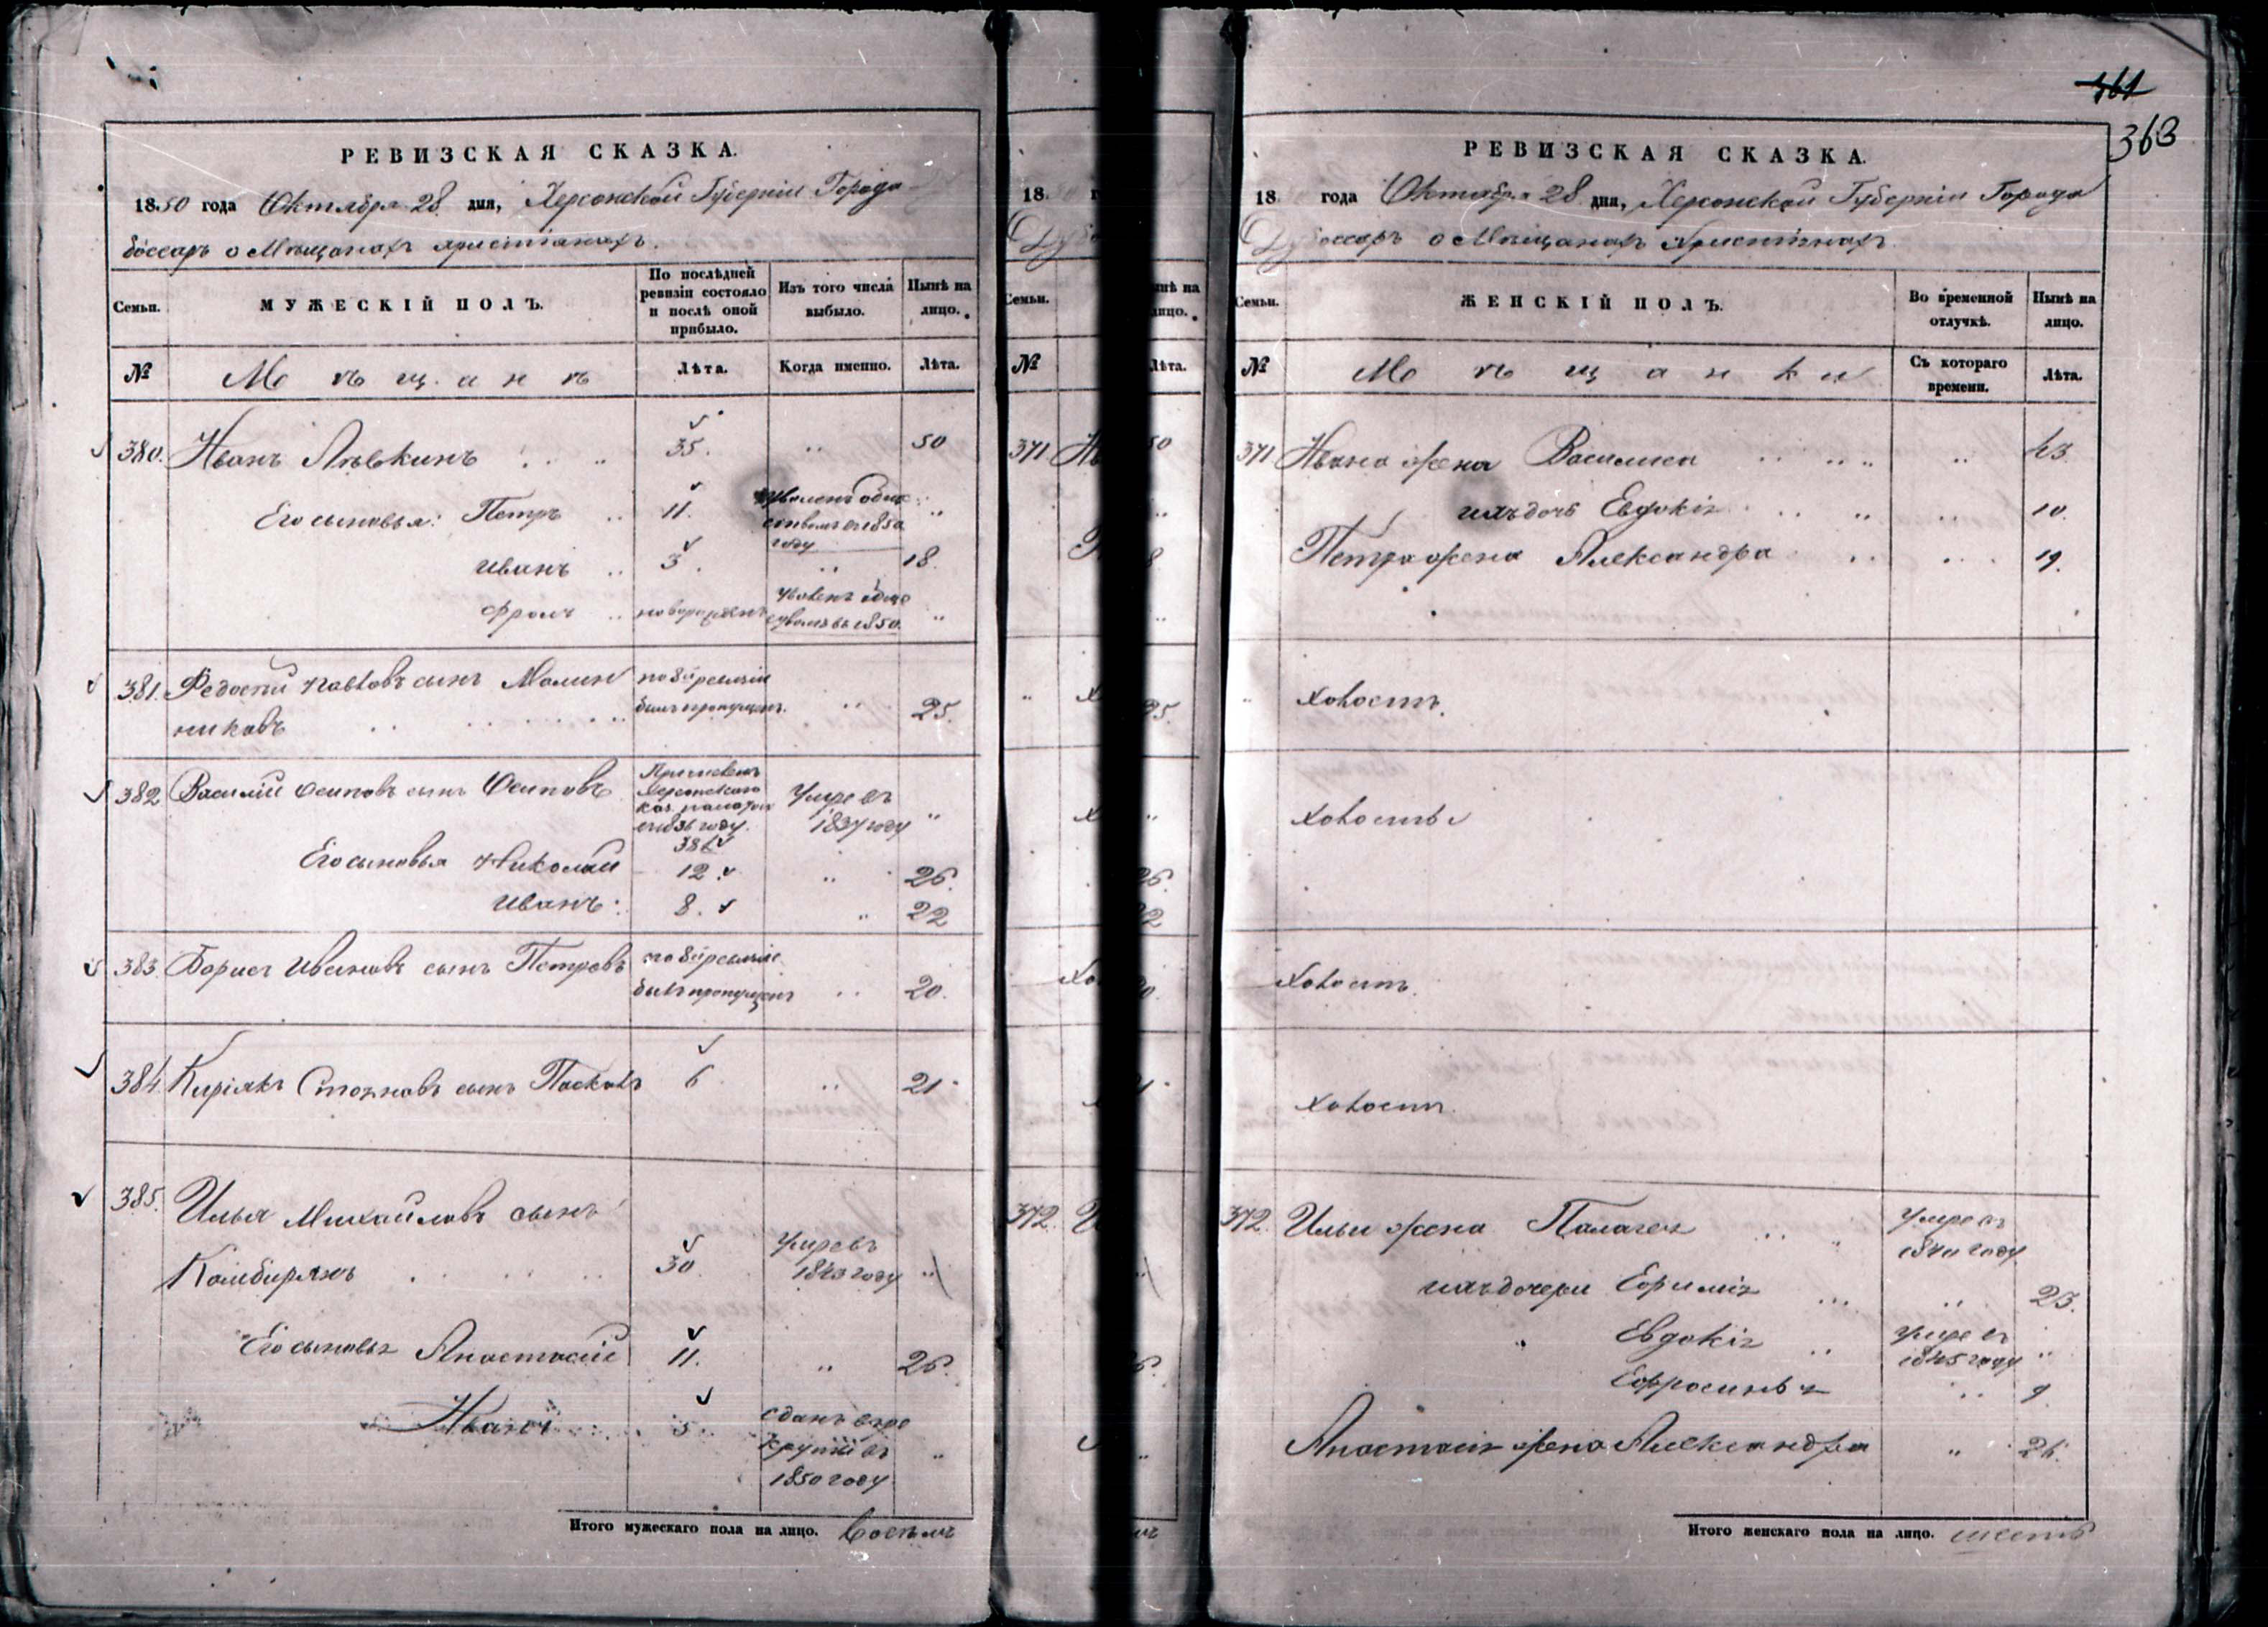 РЕВИЗСКАЯ СКАЗКА.
1850 года Октября 28 дня, Херсонской Губерніи Города
боссаръ о Мѣщанахъ христіанахъ.
Семьи. МУЖЕСКІЙ ПОЛЪ. По послѣдней ревизіи состояло и послѣ оной прибыло. Изъ того числа выбыло. Нынѣ на лицо.
№ Мѣщанѣ Лѣта. Когда именно. Лѣта.
380. Иванъ Лѣвкинъ 35. " 50
Его сыновья: Петръ 11. уволенъ обще ствомъ въ 1850 году "
Иванъ 3. " 18.
Фролъ новорожденъ уволенъ обще ствомъ въ 1850. "
381. Федосій Павловъ сынъ Малин по 8й ревизіи
никовъ былъ пропущенъ. " 25.
382 Василій Осиповъ сынъ Осиповъ Причисленъ Херсонскою каз. палатою въ 1836 году. 38 Умре въ 1837 году "
Его сыновья Николай 12. " 26.
Иванъ 8. " 22
383. Борисъ Ивановъ сынъ Петровъ по 8й ревизіи былъ пропущенъ " 20.
384. Киріякъ Стояновъ сынъ Пасковъ 6 " 21
385. Илья Михайловъ сынъ
Камбирянъ 30 Умре въ 1843 году "
Его сыновья Анастасій 11. " 26.
Иванъ 5 сданъ въ ре круты въ 1850 году "
Итого мужескаго пола на лицо. Восѣмь
18
Семьи.
нѣ на
лицо.
№
Лѣта.
371
50
372
361
363
РЕВИЗСКАЯ СКАЗКА.
18 года Октября 28 дня, Херсонской Губерніи Города
Дубоссаръ о Мѣщанахъ Христіянахъ
Семьи. ЖЕНСКІЙ ПОЛЪ. Во временной отлучкѣ. Нынѣ на лицо.
№ Мѣщанки Съ котораго времени. Лѣта.
371 Ивана жена Василиса " 43.
ихъ дочь Евдокія " 10.
Петра жена Александра " 19.
Холостъ.
Холосты
Холостъ.
Холостъ.
372. Ильи жена Палагея Умре въ 1840 году
ихъ дочери Ефимія " 23.
Евдокія Умре въ 1845 году "
Ефросинья " 9
Анастасія жена Александра " 26.
Итого женскаго пола на лицо. шесть